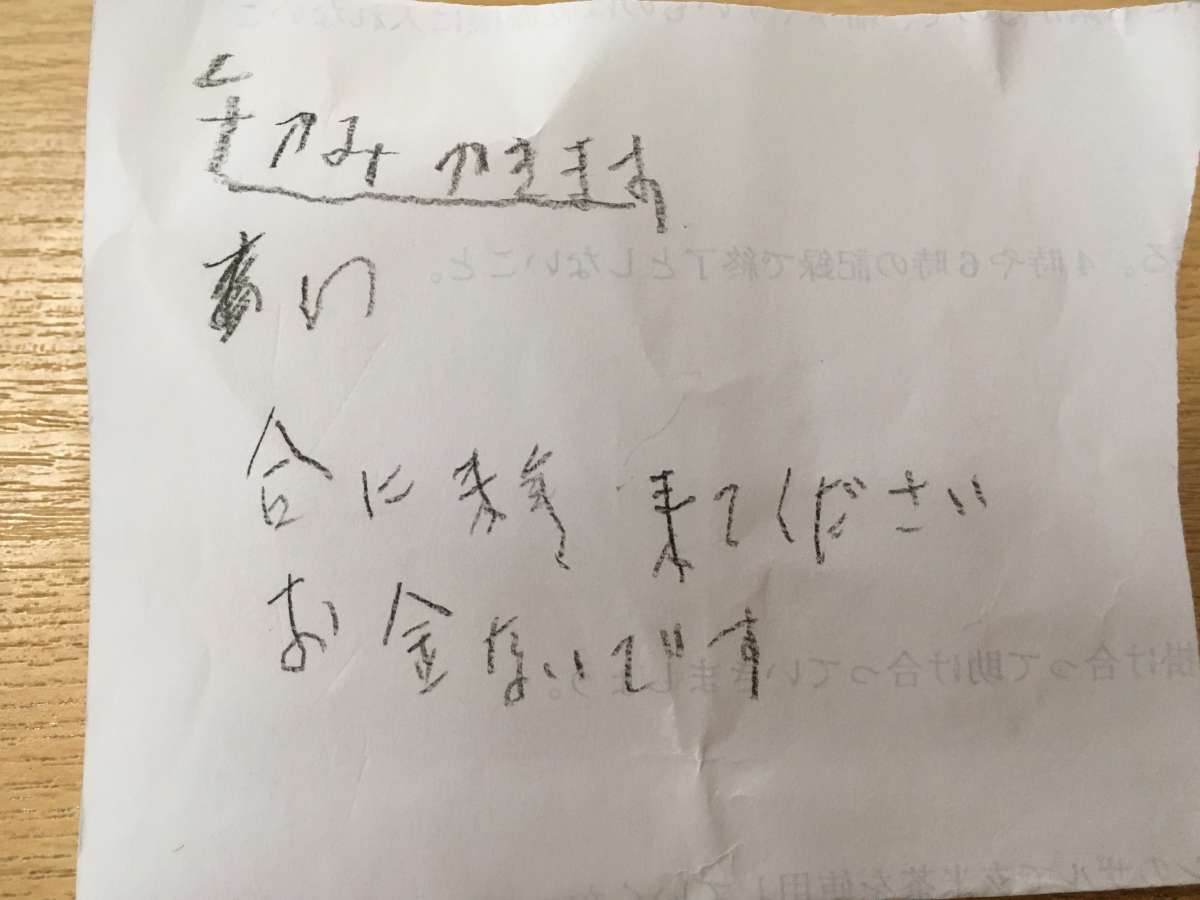 手がみ かきます
あい
合に来 来てください
お金ないです
る。4時や6時の記録で終了としないこと。
掛け合って助け合っていきましょう。